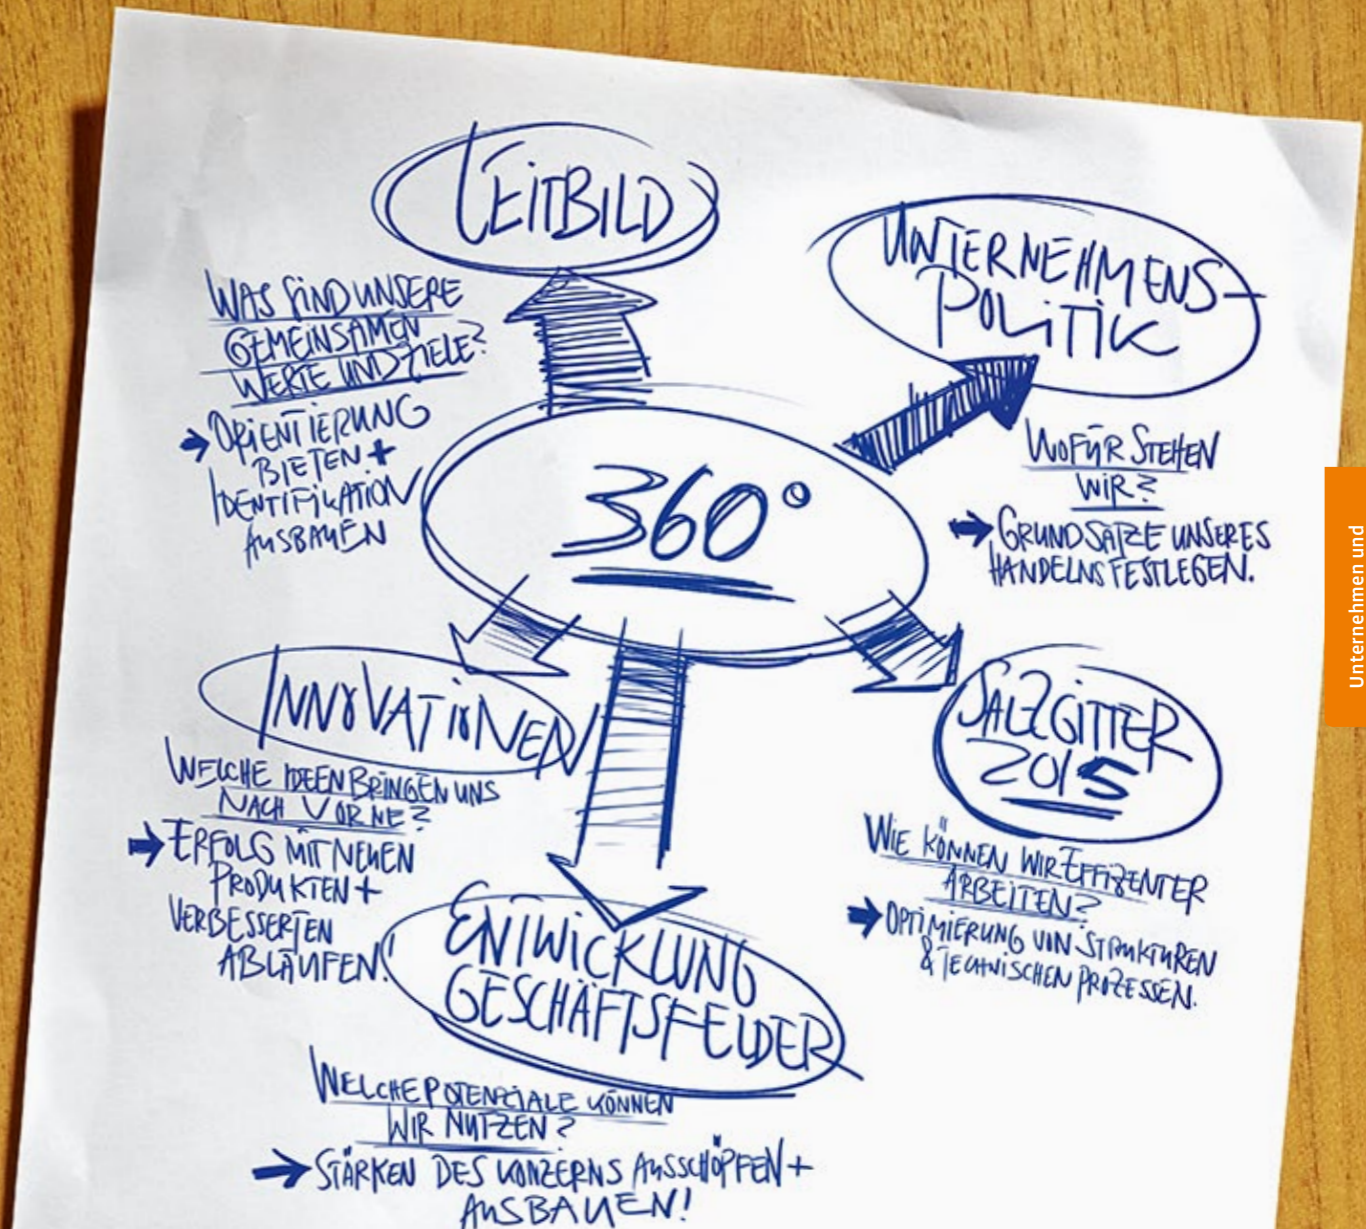 LEITBILD
WAS SIND UNSERE
GEMEINSAMEN
WERTE UND ZIELE?
➔ ORIENTIERUNG
BIETEN +
IDENTIFIKATION
AUSBAUEN
UNTERNEHMENS-
POLITIK
WOFÜR STEHEN
WIR?
➔ GRUNDSÄTZE UNSERES
HANDELNS FESTLEGEN.
360°
INNOVATIONEN
WELCHE IDEEN BRINGEN UNS
NACH VORNE?
➔ ERFOLG MIT NEUEN
PRODUKTEN +
VERBESSERTEN
ABLÄUFEN.
SALZGITTER
2015
WIE KÖNNEN WIR EFFIZIENTER
ARBEITEN?
➔ OPTIMIERUNG VON STRUKTUREN
& TECHNISCHEN PROZESSEN.
ENTWICKLUNG
GESCHÄFTSFELDER
WELCHE POTENZIALE KÖNNEN
WIR NUTZEN?
➔ STÄRKEN DES KONZERNS AUSSCHÖPFEN +
AUSBAUEN!
Unternehmen und